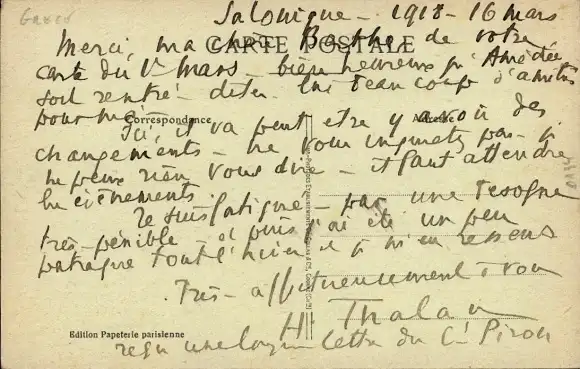 Salonique - 1918 - 16 mars
CARTE POSTALE
Merci, ma chère de votre
carte du 1er mars - bien heureux qu'Amédée
soit rentré - dites lui beaucoup d'amitiés
pour moi.
Correspondance
Adresse
Ici, il va peut etre y avoir des
changements - ne vous inquietez pas - je
ne peux rien vous dire - il faut attendre
les événements.
Je suis fatigué - par une besogne
très pénible - et puis j'ai été un peu
patraque tout l'hiver et je m'en ressens
Très affectueusement à vous
H. Thalau
Edition Papeterie parisienne
reçu une longue lettre du Ct Piron